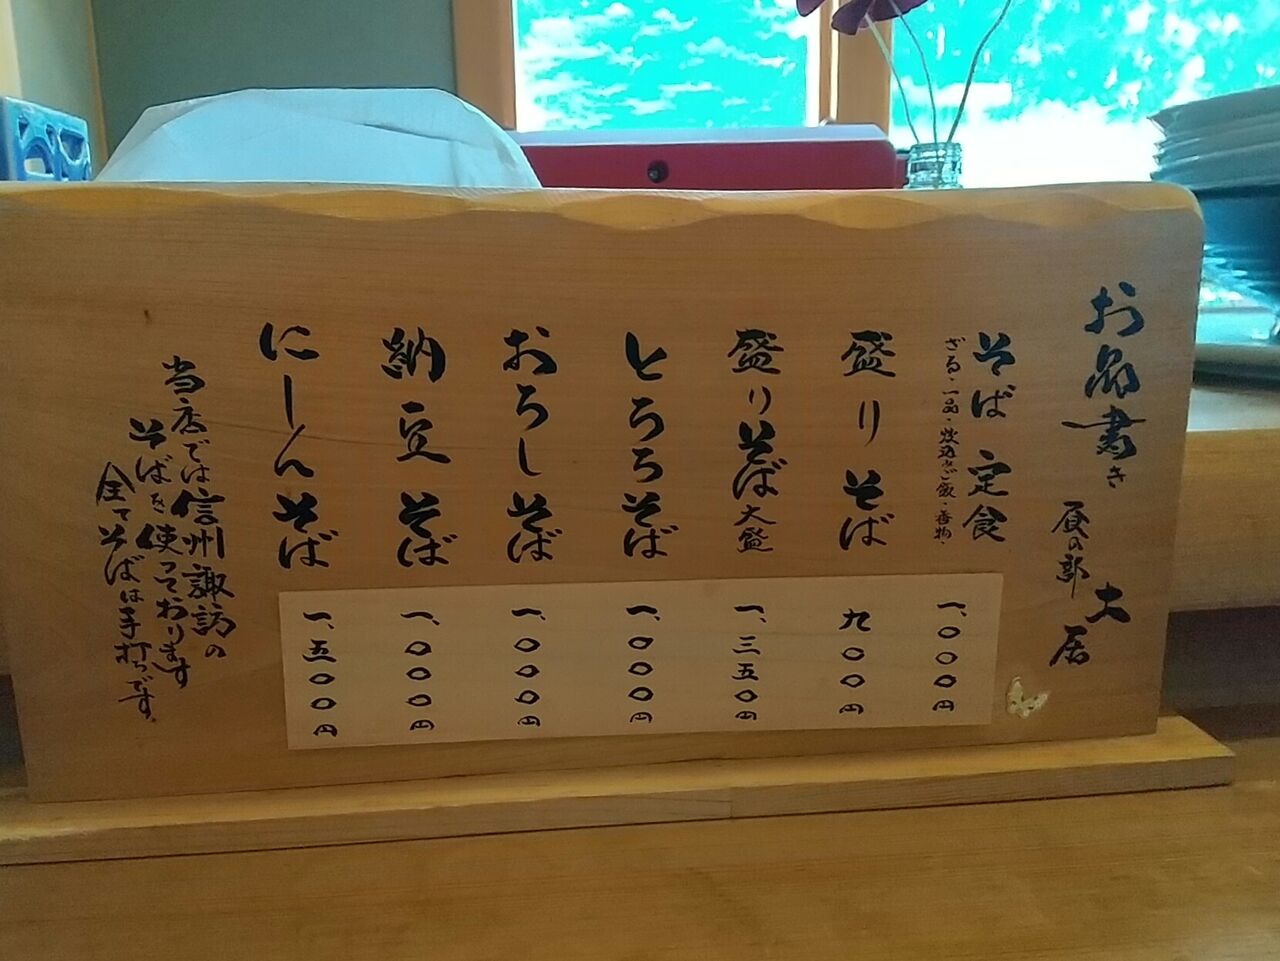 お品書き
昼の部
土居
そば 定食
ざる・一品・炊込みご飯・香物・
一、〇〇〇円
盛り そば
九〇〇円
盛り そば 大盛
一、三五〇円
とろろ そば
一、〇〇〇円
おろし そば
一、〇〇〇円
納豆 そば
一、〇〇〇円
にしん そば
一、五〇〇円
当店では信州諏訪の
そばを使っております
全てそばは手打ちです。